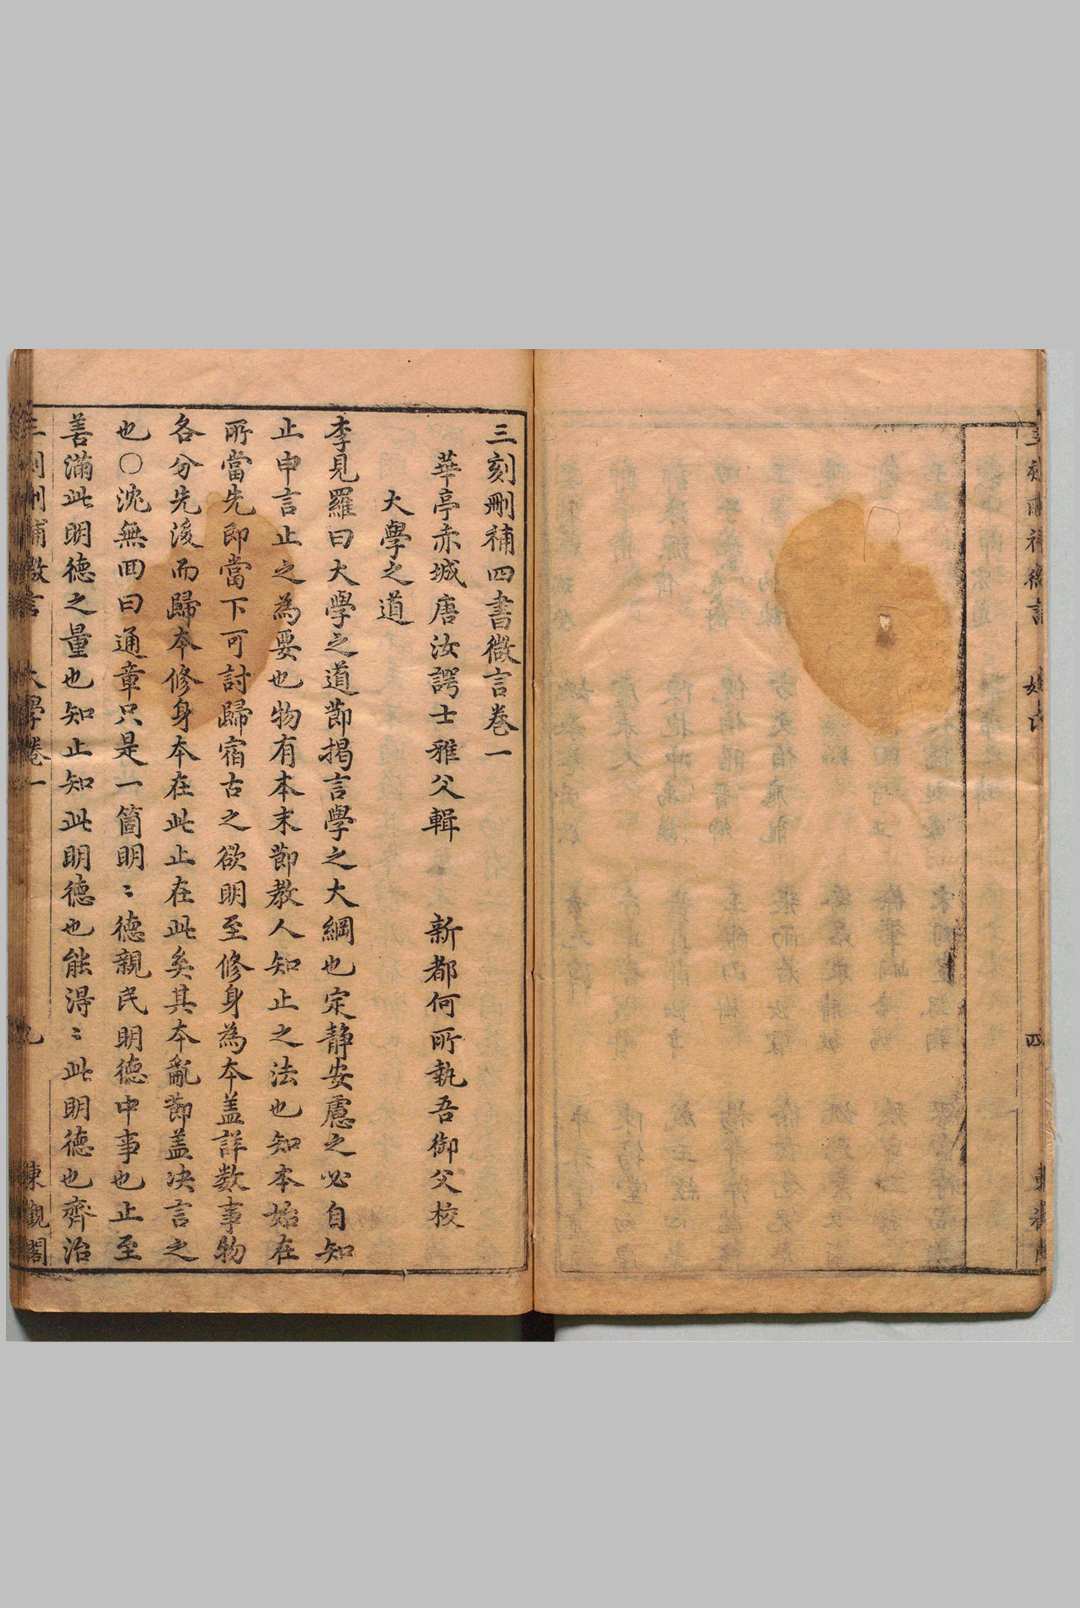 三刻刪補四書微言卷一
華亭赤城唐汝諤士雅父輯 新都何所執吾御父校
大學之道
李見羅曰大學之道節揭言學之大綱也定靜安慮之必自知
止申言止之為要也物有本末節教人知止之法也知本始在
所當先即當下可討歸宿古之欲明至修身為本蓋詳數事物
各分先後而歸本修身本在此止在此矣其本亂節蓋決言之
也○沈無回曰通章只是一箇明〻德親民明德中事也止至
善滿此明德之量也知止知此明德也能得〻此明德也齊治
三刻刪補微言 大學卷一 九 東觀閣